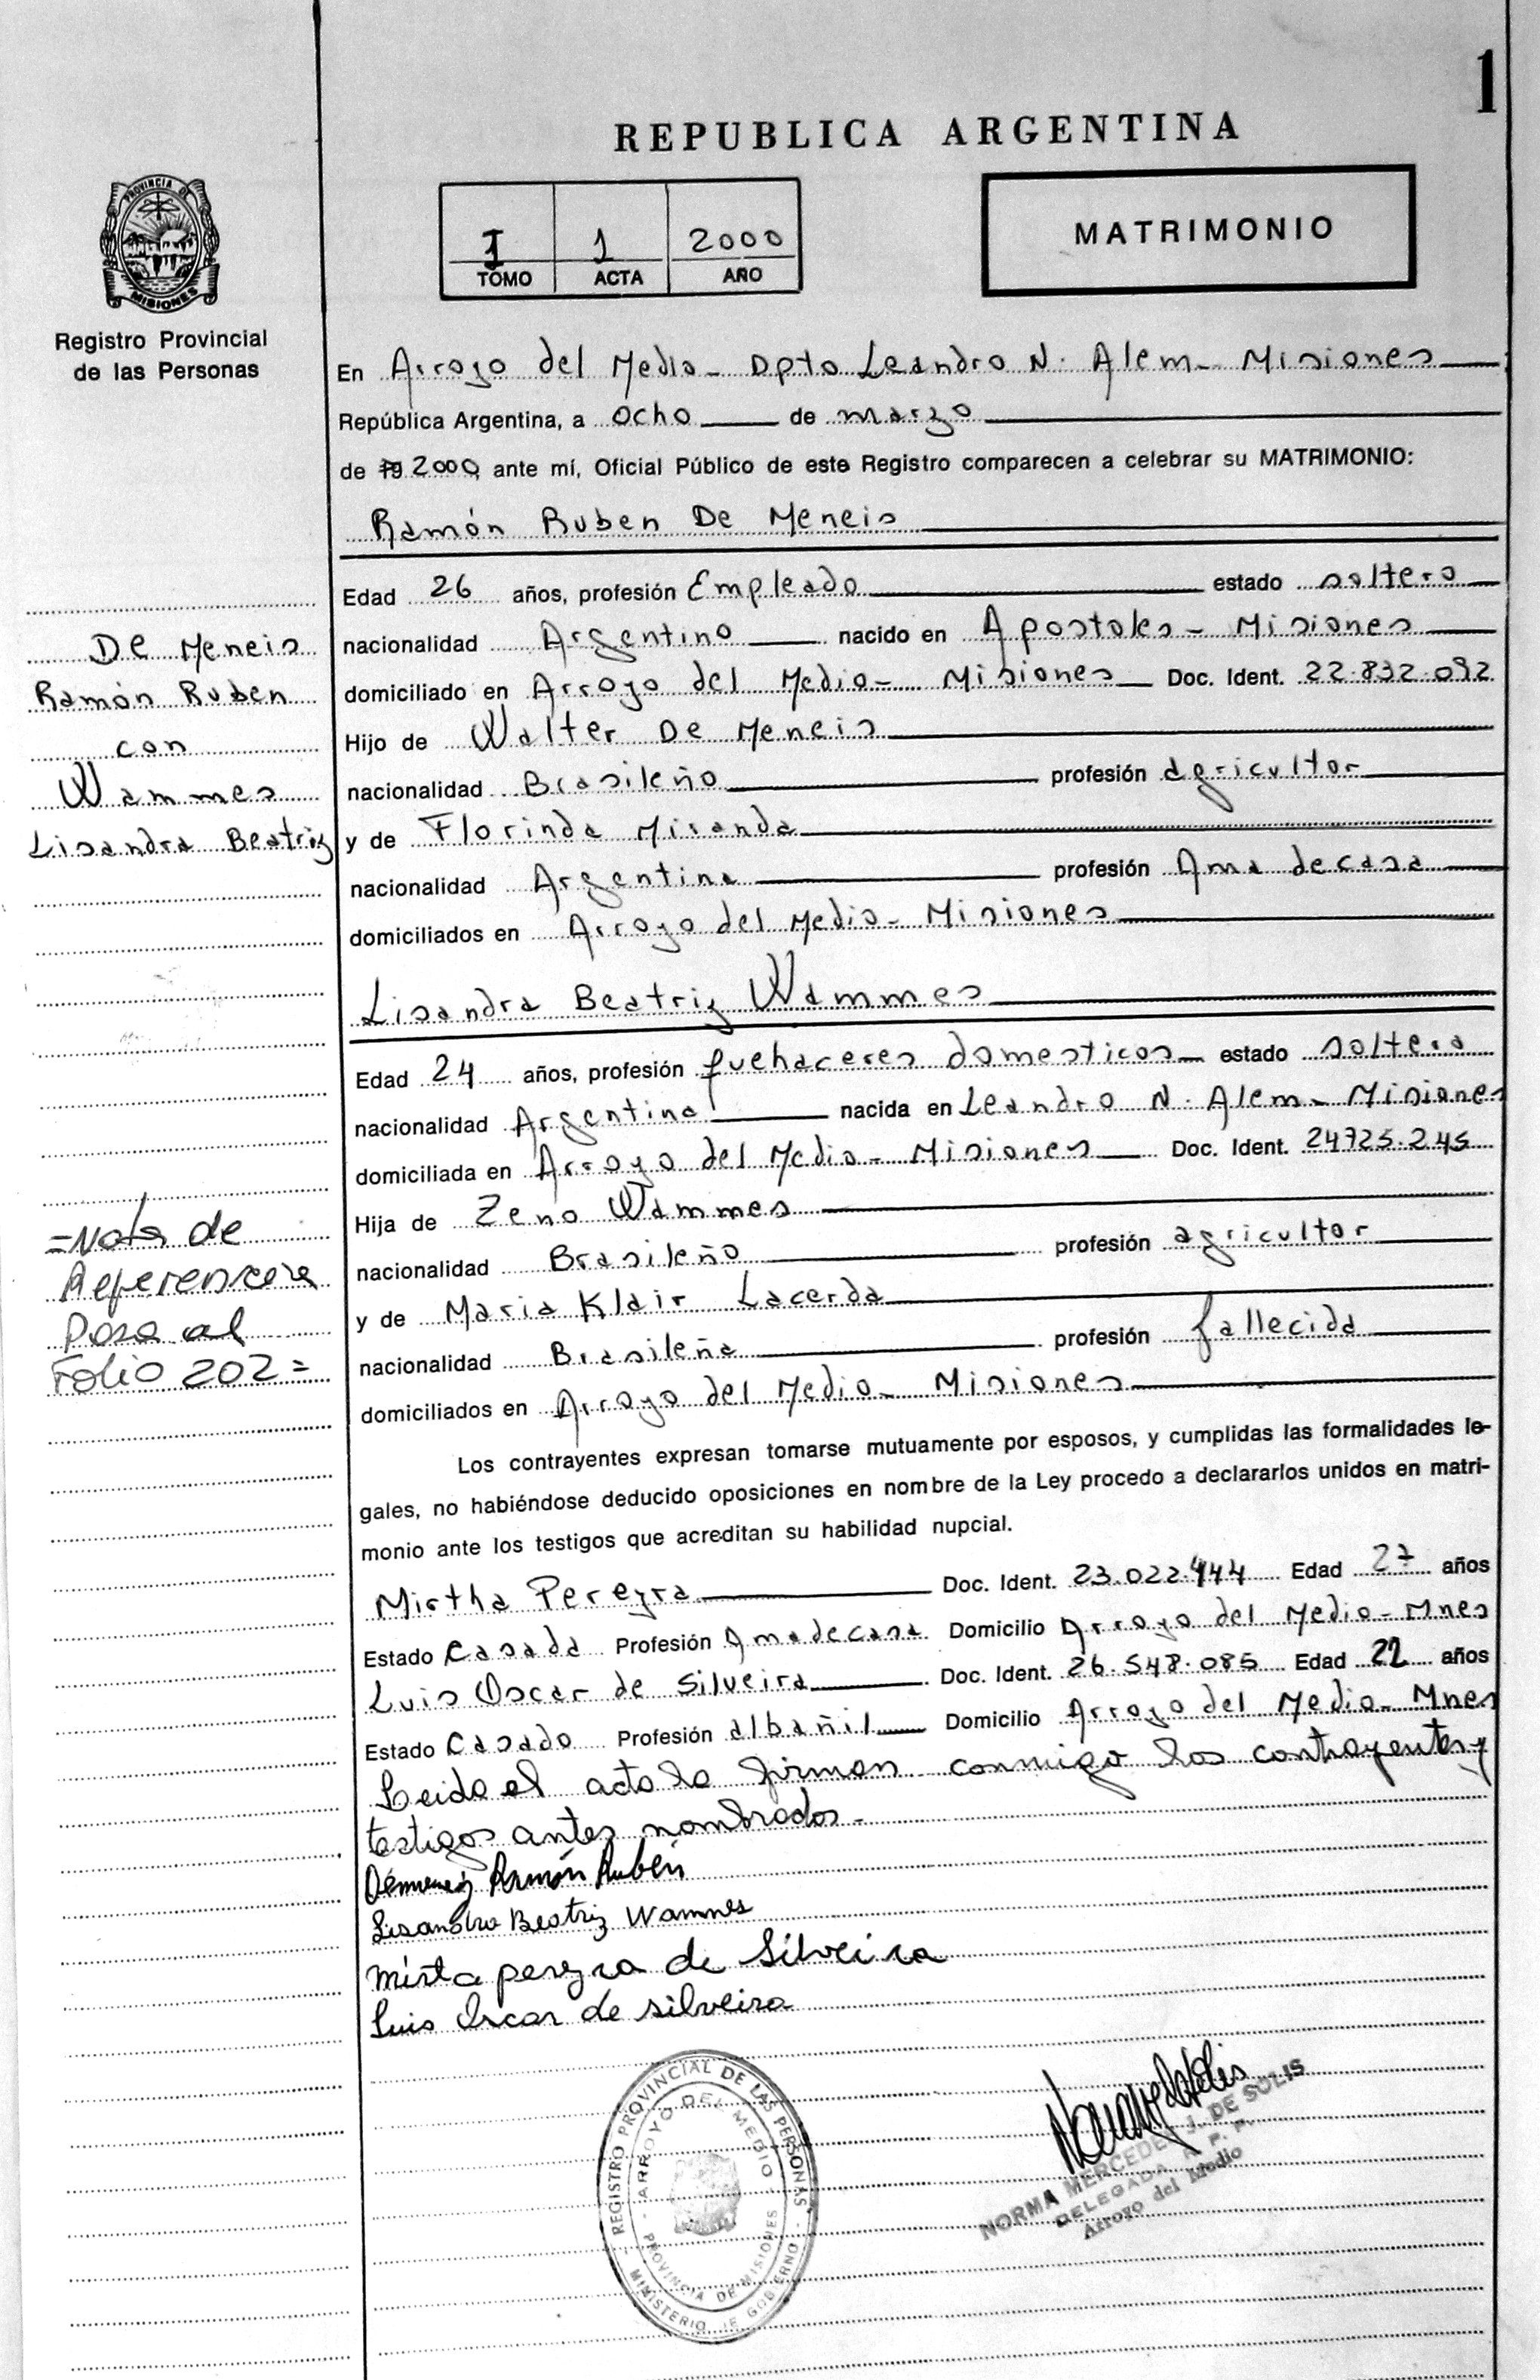 1
REPUBLICA ARGENTINA
PROVINCIA DE
MISIONES
Registro Provincial
de las Personas
I 1 2000
TOMO ACTA AÑO
MATRIMONIO
En Arroyo del Medio - Dpto Leandro N. Alem - Misiones
República Argentina, a ocho de marzo
de 19 2000 ante mí, Oficial Público de este Registro comparecen a celebrar su MATRIMONIO:
Ramón Ruben De Meneis
Edad 26 años, profesión Empleado estado soltero
nacionalidad Argentino nacido en Apostoles - Misiones
domiciliado en Arroyo del Medio - Misiones Doc. Ident. 22.832.092
Hijo de Walter De Meneis
nacionalidad Brasileño profesión agricultor
y de Florinda Miranda
nacionalidad Argentina profesión Ama de casa
domiciliados en Arroyo del Medio - Misiones
De Meneis
Ramón Ruben
con
Wammes
Lisandra Beatriz
Lisandra Beatriz Wammes
Edad 24 años, profesión quehaceres domesticos estado soltera
nacionalidad Argentina nacida en Leandro N. Alem - Misiones
domiciliada en Arroyo del Medio - Misiones Doc. Ident. 24725.245
Hija de Zeno Wammes
nacionalidad Brasileño profesión agricultor
y de Maria Klair Lacerda
nacionalidad Brasileña profesión fallecida
domiciliados en Arroyo del Medio - Misiones
=Nota de
Referencia
Pasa al
Folio 202=
Los contrayentes expresan tomarse mutuamente por esposos, y cumplidas las formalidades le-
gales, no habiéndose deducido oposiciones en nombre de la Ley procedo a declararlos unidos en matri-
monio ante los testigos que acreditan su habilidad nupcial.
Mirtha Pereyra Doc. Ident. 23.022.444 Edad 27 años
Estado Casada Profesión Ama de casa Domicilio Arroyo del Medio - Mnes
Luis Oscar de Silveira Doc. Ident. 26.548.085 Edad 22 años
Estado Casado Profesión albañil Domicilio Arroyo del Medio - Mnes
Leida el acta la firman conmigo los contrayentes y
testigos antes nombrados.-
Demeneis Ramón Ruben
Lisandra Beatriz Wammes
Mirta pereyra de Silveira
Luis Oscar de silveira
REGISTRO PROVINCIAL DE LAS PERSONAS
MINISTERIO DE GOBIERNO
ARROYO DEL MEDIO
PROVINCIA DE MISIONES
NORMA MERCEDES J. DE SOLIS
DELEGADA R. P. P.
Arroyo del Medio